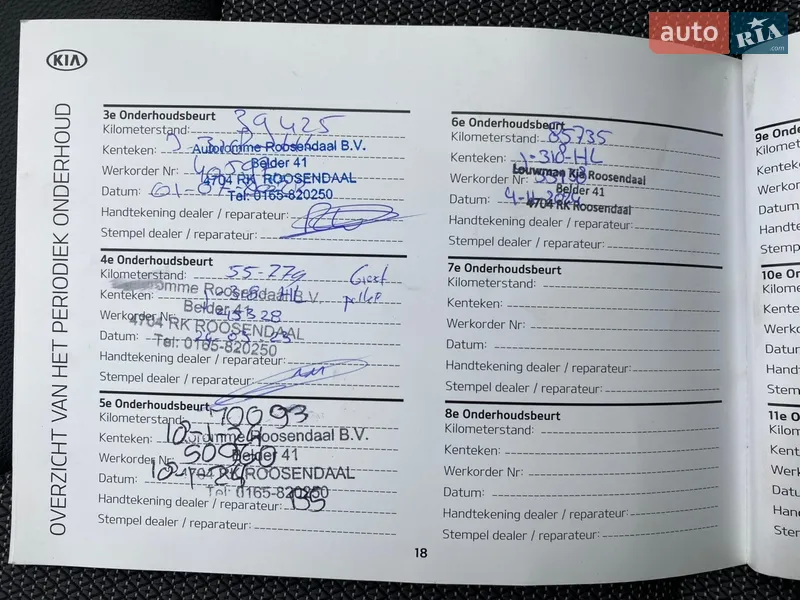 auto RIA .com
KIA
OVERZICHT VAN HET PERIODIEK ONDERHOUD
3e Onderhoudsbeurt
Kilometerstand: 39425
Kenteken:
Autoromme Roosendaal B.V.
Werkorder Nr:
Belder 41
4704 RK ROOSENDAAL
Datum:
Tel: 0165-820250
Handtekening dealer / reparateur:
Stempel dealer / reparateur:
4e Onderhoudsbeurt
Kilometerstand: 55-779
Kenteken:
omme Roosendaal B.V.
Belder 41
Werkorder Nr: 45328
4704 RK ROOSENDAAL
Datum:
Tel: 0165-820250
Handtekening dealer / reparateur:
Stempel dealer / reparateur:
5e Onderhoudsbeurt
Kilometerstand: 70093
Kenteken:
Autoromme Roosendaal B.V.
Werkorder Nr:
Belder 41
4704 RK ROOSENDAAL
Datum:
Tel: 0165-820250
Handtekening dealer / reparateur:
Stempel dealer / reparateur:
6e Onderhoudsbeurt
Kilometerstand: 85735
Kenteken: J-318-HL
Louwman Kia Roosendaal
Werkorder Nr:
Belder 41
Datum:
4704 RK Roosendaal
Handtekening dealer / reparateur:
Stempel dealer / reparateur:
7e Onderhoudsbeurt
Kilometerstand:
Kenteken:
Werkorder Nr:
Datum:
Handtekening dealer / reparateur:
Stempel dealer / reparateur:
8e Onderhoudsbeurt
Kilometerstand:
Kenteken:
Werkorder Nr:
Datum:
Handtekening dealer / reparateur:
Stempel dealer / reparateur:
18
9e On
Kilomet
Kentek
Werkor
Datum
Handt
Stemp
10e O
Kilome
Kente
Werk
Datu
Hand
Stem
11e O
Kilom
Kent
Wer
Dat
Han
Ster